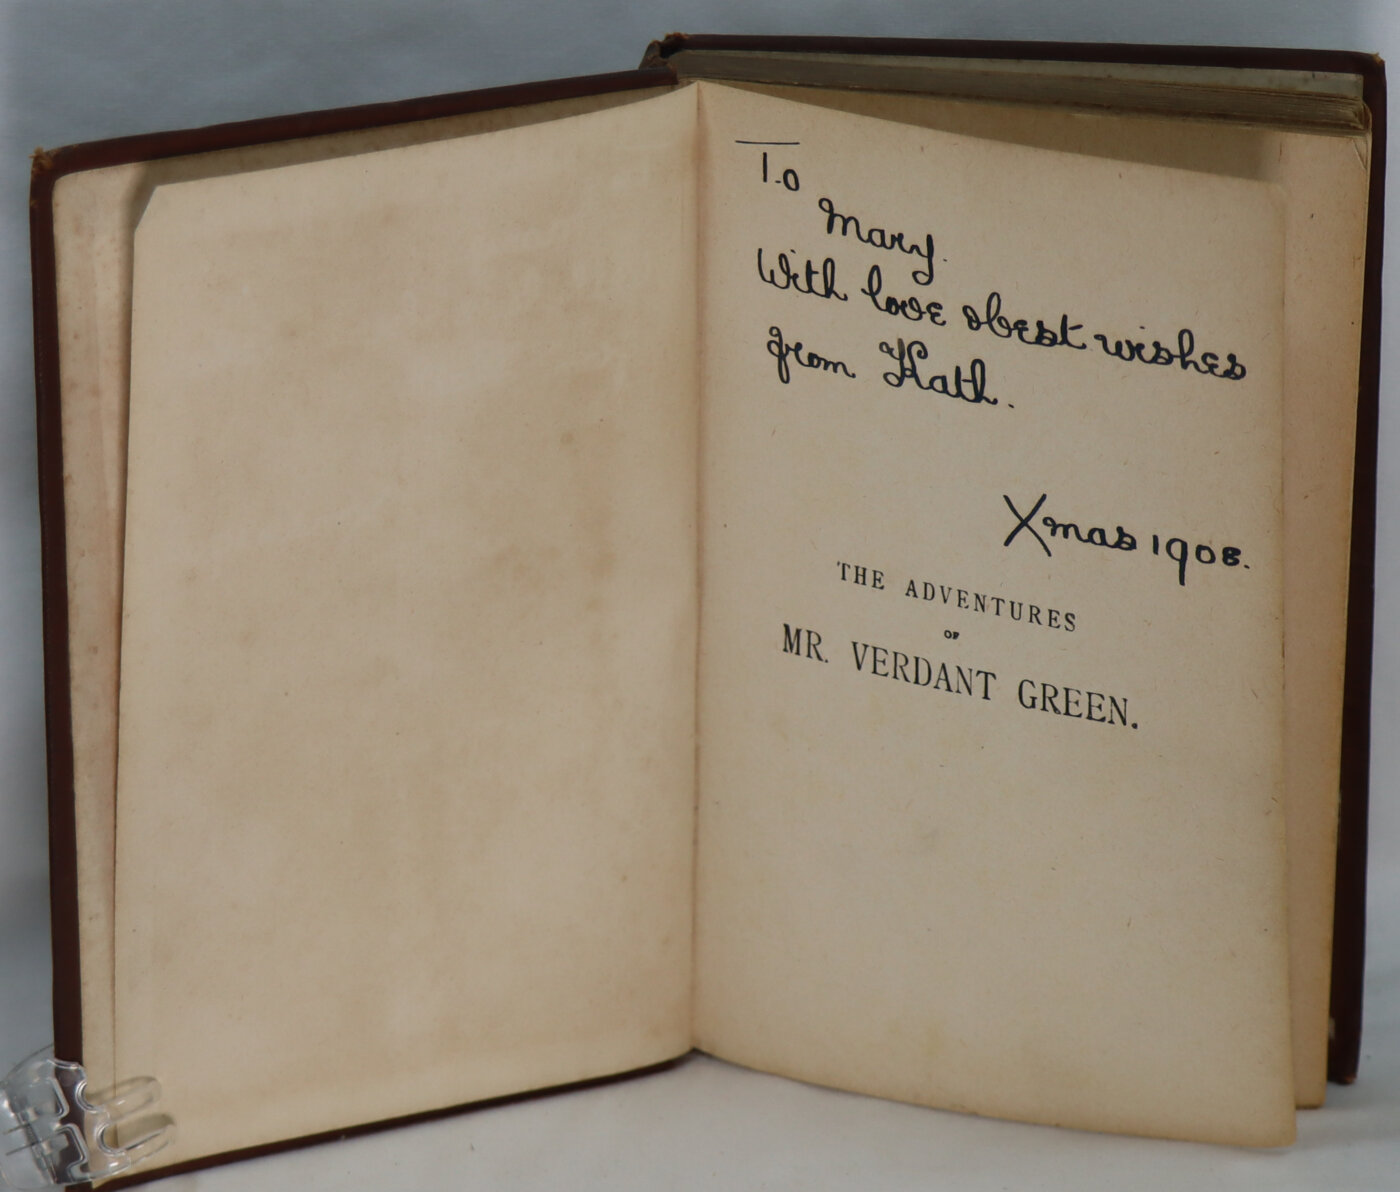 To
Mary.
With love & best wishes
from Kath.
Xmas 1908.
THE ADVENTURES
OF
MR. VERDANT GREEN.